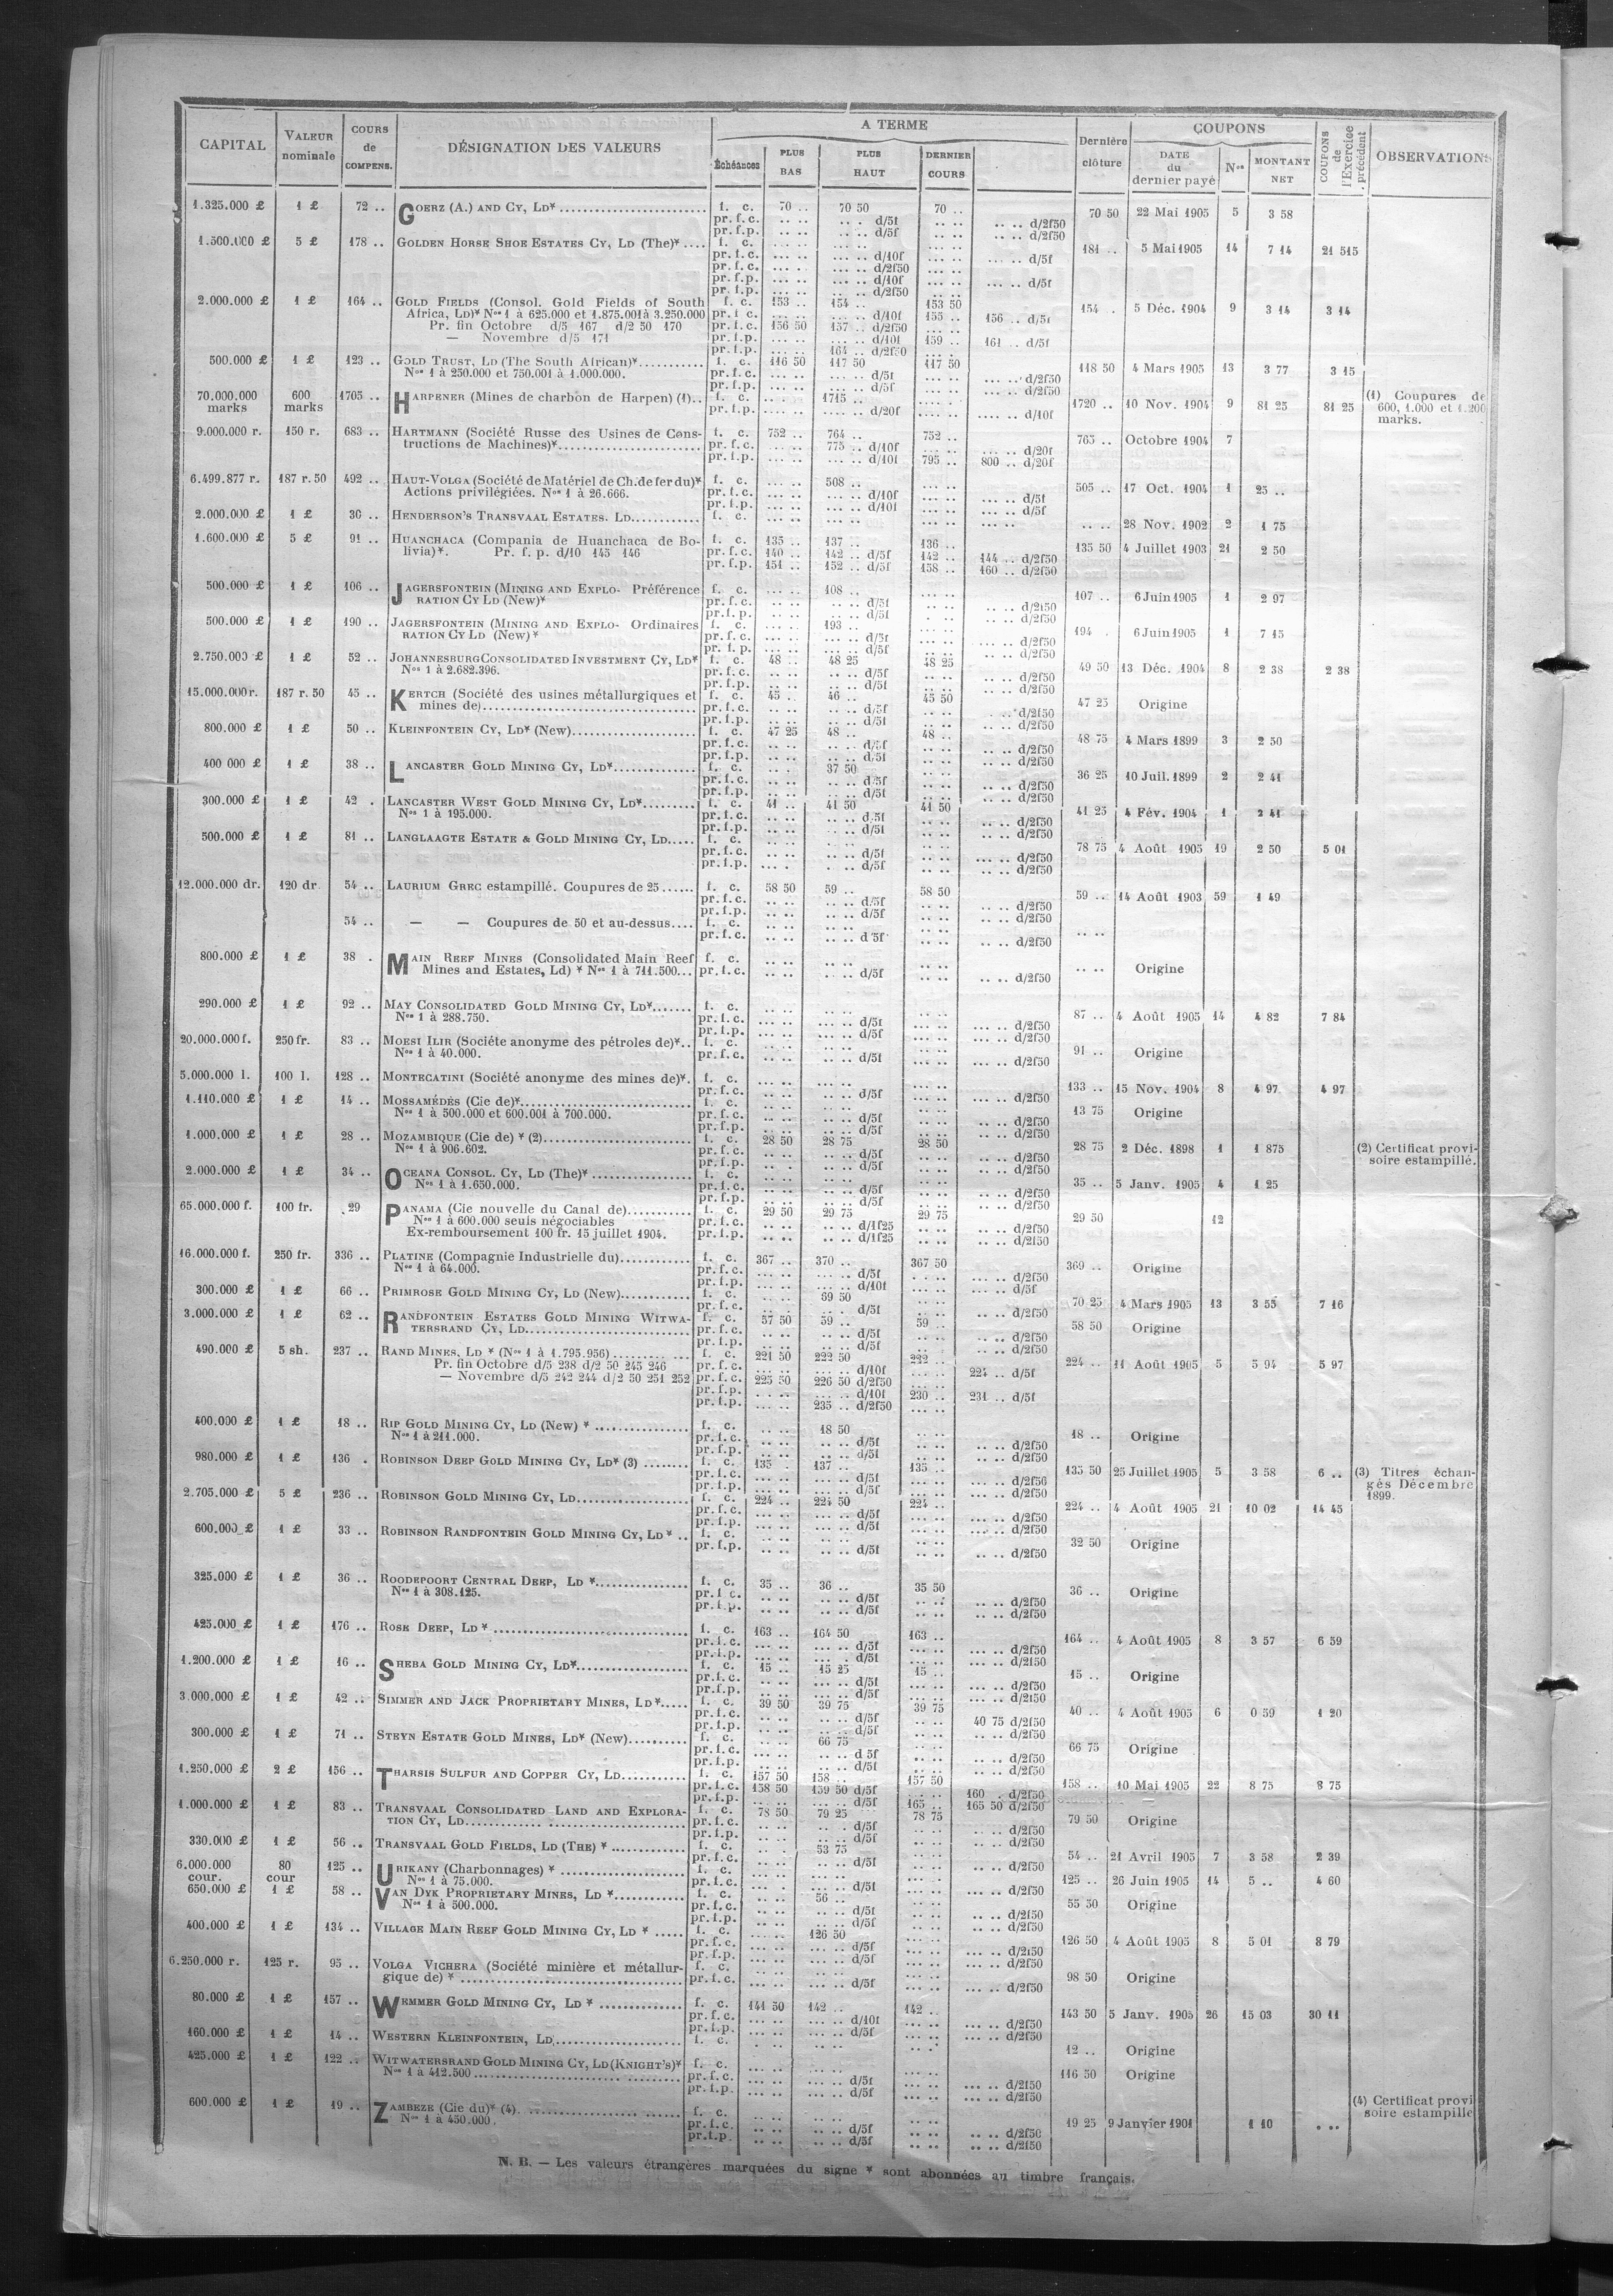 CAPITAL | VALEUR nominale | COURS de COMPENS. | DÉSIGNATION DES VALEURS | A TERME | Dernière clôture | COUPONS | COUPONS de l'Exercice précédent | OBSERVATIONS
Échéances | PLUS BAS | PLUS HAUT | DERNIER COURS | DATE du dernier payé | Nos | MONTANT NET
1.325.000 £ 1 £ 72 .. GOERZ (A.) AND CY, LD* f. c. 70 .. 70 50 70 .. 70 50 22 Mai 1905 5 3 58
pr. f. c. d/5f d/2f50
pr. f. p. d/5f d/2f50
1.500.000 £ 5 £ 178 .. GOLDEN HORSE SHOE ESTATES CY, LD (The)* f. c. 181 .. 5 Mai 1905 14 7 14 21 515
pr. f. c. d/10f d/5f
pr. f. c. d/2f50
pr. f. p. d/10f d/5f
pr. f. p. d/2f50
2.000.000 £ 1 £ 164 .. GOLD FIELDS (Consol. Gold Fields of South f. c. 153 .. 154 .. 153 50 154 . 5 Déc. 1904 9 3 14 3 14
Africa, LD)* Nos 1 à 625.000 et 1.875.001 à 3.250.000 pr. f. c. d/10f 155 .. 156 .. d/5f
Pr. fin Octobre d/5 167 d/2 50 170 pr. f. c. 156 50 157 .. d/2f50
— Novembre d/5 171 pr. f. p. d/10f 159 .. 161 .. d/5f
pr. f. p. 164 .. d/2f50
500.000 £ 1 £ 123 .. GOLD TRUST, LD (The South African)* f. c. 116 50 117 50 117 50 118 50 4 Mars 1905 13 3 77 3 15
Nos 1 à 250.000 et 750.001 à 1.000.000. pr. f. c. d/5f d/2f50
pr. f. p. d/5f d/2f50
70.000.000 marks 600 marks 1705 .. HARPENER (Mines de charbon de Harpen) (1).. f. c. 1715 .. 1720 .. 10 Nov. 1904 9 81 25 81 25 (1) Coupures de 600, 1.000 et 1.200 marks.
pr. f. p. d/20f d/10f
9.000.000 r. 150 r. 683 .. HARTMANN (Société Russe des Usines de Cons- f. c. 752 .. 764 .. 752 .. 765 .. Octobre 1904 7
tructions de Machines)* pr. f. c. 775 .. d/10f d/20f
pr. f. p. d/10f 795 .. 800 .. d/20f
6.499.877 r. 187 r. 50 492 .. HAUT-VOLGA (Société de Matériel de Ch. de fer du)* f. c. 508 .. 505 .. 17 Oct. 1904 1 25 ..
Actions privilégiées. Nos 1 à 26.666. pr. f. c. d/10f d/5f
pr. f. p. d/10f d/5f
2.000.000 £ 1 £ 30 .. HENDERSON'S TRANSVAAL ESTATES. LD f. c. 28 Nov. 1902 2 1 75
1.600.000 £ 5 £ 91 .. HUANCHACA (Compania de Huanchaca de Bo- f. c. 135 .. 137 .. 136 .. 135 50 4 Juillet 1903 21 2 50
livia)*. Pr. f. p. d/10 145 146 pr. f. c. 140 .. 142 .. d/5f 142 .. 144 .. d/2f50
pr. f. p. 151 .. 152 .. d/5f 158 .. 160 .. d/2f50
500.000 £ 1 £ 106 .. JAGERSFONTEIN (MINING AND EXPLO- Préférence f. c. 108 .. 107 .. 6 Juin 1905 1 2 97
RATION CY LD (New)* pr. f. c. d/5f d/2f50
pr. f. p. d/5f d/2f50
500.000 £ 1 £ 190 .. JAGERSFONTEIN (MINING AND EXPLO- Ordinaires f. c. 193 .. 194 . 6 Juin 1905 1 7 15
RATION CY LD (New)* pr. f. c. d/5f d/2f50
pr. f. p. d/5f d/2f50
2.750.000 £ 1 £ 52 .. JOHANNESBURG CONSOLIDATED INVESTMENT CY, LD* f. c. 48 .. 48 25 48 25 49 50 13 Déc. 1904 8 2 38 2 38
Nos 1 à 2.682.396. pr. f. c. d/5f d/2f50
pr. f. p. d/5f d/2f50
15.000.000 r. 187 r. 50 45 .. KERTCH (Société des usines métallurgiques et f. c. 45 .. 46 .. 45 50 47 25 Origine
mines de) pr. f. c. d/5f d/2f50
pr. f. p. d/5f d/2f50
800.000 £ 1 £ 50 .. KLEINFONTEIN CY, LD* (New) f. c. 47 25 48 .. 48 .. 48 75 4 Mars 1899 3 2 50
pr. f. c. d/5f d/2f50
pr. f. p. d/5f d/2f50
400 000 £ 1 £ 38 .. LANCASTER GOLD MINING CY, LD* f. c. 37 50 36 25 10 Juil. 1899 2 2 41
pr. f. c. d/5f d/2f50
pr. f. p. d/5f d/2f50
300.000 £ 1 £ 42 . LANCASTER WEST GOLD MINING CY, LD* f. c. 41 .. 41 50 41 50 41 25 4 Fév. 1904 1 2 41
Nos 1 à 195.000. pr. f. c. d/5f d/2f50
pr. f. p. d/5f d/2f50
500.000 £ 1 £ 81 .. LANGLAAGTE ESTATE & GOLD MINING CY, LD f. c. 78 75 4 Août 1905 19 2 50 5 01
pr. f. c. d/5f d/2f50
pr. f. p. d/5f d/2f50
12.000.000 dr. 120 dr. 54 .. LAURIUM GREC estampillé. Coupures de 25 f. c. 58 50 59 .. 58 50 59 .. 14 Août 1903 59 1 49
pr. f. c. d/5f d/2f50
pr. f. p. d/5f d/2f50
54 .. — — Coupures de 50 et au-dessus f. c.
pr. f. c. d 5f d/2f50
800.000 £ 1 £ 38 . MAIN REEF MINES (Consolidated Main Reef f. c. Origine
Mines and Estates, Ld) * Nos 1 à 711.500 pr. f. c. d/5f d/2f50
290.000 £ 1 £ 92 .. MAY CONSOLIDATED GOLD MINING CY, LD* f. c. 87 .. 4 Août 1905 14 4 82 7 84
Nos 1 à 288.750. pr. f. c. d/5f d/2f50
pr. f. p. d/5f d/2f50
20.000.000 f. 250 fr. 83 .. MOESI ILIR (Sociéte anonyme des pétroles de)* f. c. 91 .. Origine
Nos 1 à 40.000. pr. f. c. d/5f d/2f50
5.000.000 l. 100 l. 128 .. MONTECATINI (Société anonyme des mines de)*. f. c. 133 .. 15 Nov. 1904 8 4 97 4 97
pr. f. c. d/5f d/2f50
1.110.000 £ 1 £ 14 .. MOSSAMÉDÈS (Cie de)* f. c. 13 75 Origine
Nos 1 à 500.000 et 600.001 à 700.000. pr. f. c. d/5f d/2f50
pr. f. p. d/5f d/2f50
1.000.000 £ 1 £ 28 .. MOZAMBIQUE (Cie de) * (2) f. c. 28 50 28 75 28 50 28 75 2 Déc. 1898 1 1 875 (2) Certificat provi-
Nos 1 à 906.602. pr. f. c. d/5f d/2f50 soire estampillé.
pr. f. p. d/5f d/2f50
2.000.000 £ 1 £ 34 .. OCEANA CONSOL. CY, LD (The)* f. c. 35 .. 5 Janv. 1905 4 1 25
Nos 1 à 1.650.000. pr. f. c. d/5f d/2f50
pr. f. p. d/5f d/2f50
65.000.000 f. 100 fr. 29 PANAMA (Cie nouvelle du Canal de) f. c. 29 50 29 75 29 75 29 50 12
Nos 1 à 600.000 seuls négociables pr. f. c. d/1f25 d/2f50
Ex-remboursement 100 fr. 15 juillet 1904. pr. f. p. d/1f25 d/2f50
16.000.000 f. 250 fr. 336 .. PLATINE (Compagnie Industrielle du) f. c. 367 .. 370 .. 367 50 369 .. Origine
Nos 1 à 64.000. pr. f. c. d/5f d/2f50
pr. f. p. d/10f d/5f
300.000 £ 1 £ 66 .. PRIMROSE GOLD MINING CY, LD (New) f. c. 69 50 70 25 4 Mars 1905 13 3 55 7 16
pr. f. c. d/5f d/2f50
3.000.000 £ 1 £ 62 .. RANDFONTEIN ESTATES GOLD MINING WITWA- f. c. 57 50 59 .. 59 .. 58 50 Origine
TERSRAND CY, LD pr. f. c. d/5f d/2f50
pr. f. p. d/5f d/2f50
490.000 £ 5 sh. 237 .. RAND MINES, LD * (Nos 1 à 1.795.956) f. c. 221 50 222 50 222 .. 224 .. 11 Août 1905 5 5 94 5 97
Pr. fin Octobre d/5 238 d/2 50 245 246 pr. f. c. d/10f 224 .. d/5f
— Novembre d/5 242 244 d/2 50 251 252 pr. f. c. 225 50 226 50 d/2f50
pr. f. p. d/10f 230 .. 231 .. d/5f
pr. f. p. 235 .. d/2f50
400.000 £ 1 £ 18 .. RIP GOLD MINING CY, LD (New) * f. c. 18 50 18 .. Origine
Nos 1 à 211.000. pr. f. c. d/5f d/2f50
pr. f. p. d/5f d/2f50
980.000 £ 1 £ 136 . ROBINSON DEEP GOLD MINING CY, LD* (3) f. c. 135 137 .. 135 .. 135 50 25 Juillet 1905 5 3 58 6 .. (3) Titres échan-
pr. f. c. d/5f d/2f50 gés Décembre
pr. f. p. d/5f d/2f50 1899.
2.705.000 £ 5 £ 236 .. ROBINSON GOLD MINING CY, LD f. c. 224 .. 224 50 224 .. 224 .. 4 Août 1905 21 10 02 14 45
pr. f. c. d/5f d/2f50
pr. f. p. d/5f d/2f50
600.000 £ 1 £ 33 .. ROBINSON RANDFONTEIN GOLD MINING CY, LD * .. f. c. 32 50 Origine
pr. f. p. d/5f d/2f50
325.000 £ 1 £ 36 .. ROODEPOORT CENTRAL DEEP, LD * f. c. 35 .. 36 .. 35 50 36 .. Origine
Nos 1 à 308.125. pr. f. c. d/5f d/2f50
pr. f. p. d/5f d/2f50
425.000 £ 1 £ 176 .. ROSE DEEP, LD * f. c. 163 .. 164 50 163 .. 164 .. 4 Août 1905 8 3 57 6 59
pr. f. c. d/5f d/2f50
pr. f. p. d/5f d/2f50
1.200.000 £ 1 £ 16 .. SHEBA GOLD MINING CY, LD* f. c. 15 .. 15 25 15 .. 15 .. Origine
pr. f. c. d/5f d/2f50
pr. f. p. d/5f d/2f50
3.000.000 £ 1 £ 42 .. SIMMER AND JACK PROPRIETARY MINES, LD* f. c. 39 50 39 75 39 75 40 .. 4 Août 1905 6 0 59 1 20
pr. f. c. d/5f 40 75 d/2f50
pr. f. p. d/5f d/2f50
300.000 £ 1 £ 71 .. STEYN ESTATE GOLD MINES, LD* (New) f. c. 66 75 66 75 Origine
pr. f. c. d 5f d/2f50
pr. f. p. d/5f d/2f50
1.250.000 £ 2 £ 156 .. THARSIS SULFUR AND COPPER CY, LD f. c. 157 50 158 .. 157 50 158 .. 10 Mai 1905 22 8 75 8 75
pr. f. c. 158 50 159 50 d/5f 160 . d/2f50
pr. f. p. d/5f 165 .. 165 50 d/2f50
1.000.000 £ 1 £ 83 .. TRANSVAAL CONSOLIDATED LAND AND EXPLORA- f. c. 78 50 79 25 78 75 79 50 Origine
TION CY, LD pr. f. c. d/5f d/2f50
pr. f. p. d/5f d/2f50
330.000 £ 1 £ 56 .. TRANSVAAL GOLD FIELDS, LD (THE) * f. c. 53 75 54 .. 21 Avril 1905 7 3 58 2 39
pr. f. c. d/5f d/2f50
6.000.000 cour. 80 cour 125 .. URIKANY (Charbonnages) * f. c. 125 .. 26 Juin 1905 14 5 .. 4 60
Nos 1 à 75.000. pr. f. c. d/5f d/2f50
650.000 £ 1 £ 58 .. VAN DYK PROPRIETARY MINES, LD * f. c. 56 .. 55 50 Origine
Nos 1 à 500.000. pr. f. c. d/5f d/2f50
pr. f. p. d/5f d/2f50
400.000 £ 1 £ 134 .. VILLAGE MAIN REEF GOLD MINING CY, LD * f. c. 126 50 126 50 4 Août 1905 8 5 01 8 79
pr. f. c. d/5f d/2f50
pr. f. p. d/5f d/2f50
6.250.000 r. 125 r. 95 .. VOLGA VICHERA (Société minière et métallur- f. c. 98 50 Origine
gique de) * pr. f. c. d/5f d/2f50
80.000 £ 1 £ 157 .. WEMMER GOLD MINING CY, LD * f. c. 141 50 142 .. 142 .. 143 50 5 Janv. 1905 26 15 03 30 11
pr. f. c. d/10f d/2f50
pr. f. p. d/5f d/2f50
160.000 £ 1 £ 14 .. WESTERN KLEINFONTEIN, LD f. c. 12 .. Origine
425.000 £ 1 £ 122 .. WITWATERSRAND GOLD MINING CY, LD (KNIGHT'S)* f. c. 116 50 Origine
Nos 1 à 412.500 pr. f. c. d/5f d/2f50
pr. f. p. d/5f d/2f50
600.000 £ 1 £ 19 .. ZAMBEZE (Cie du)* (4) f. c. 19 25 9 Janvier 1901 1 10 (4) Certificat provi
Nos 1 à 450.000. pr. f. c. d/5f d/2f50 soire estampillé
pr. f. p. d/5f d/2f50
N. B. — Les valeurs étrangères marquées du signe * sont abonnées au timbre français.